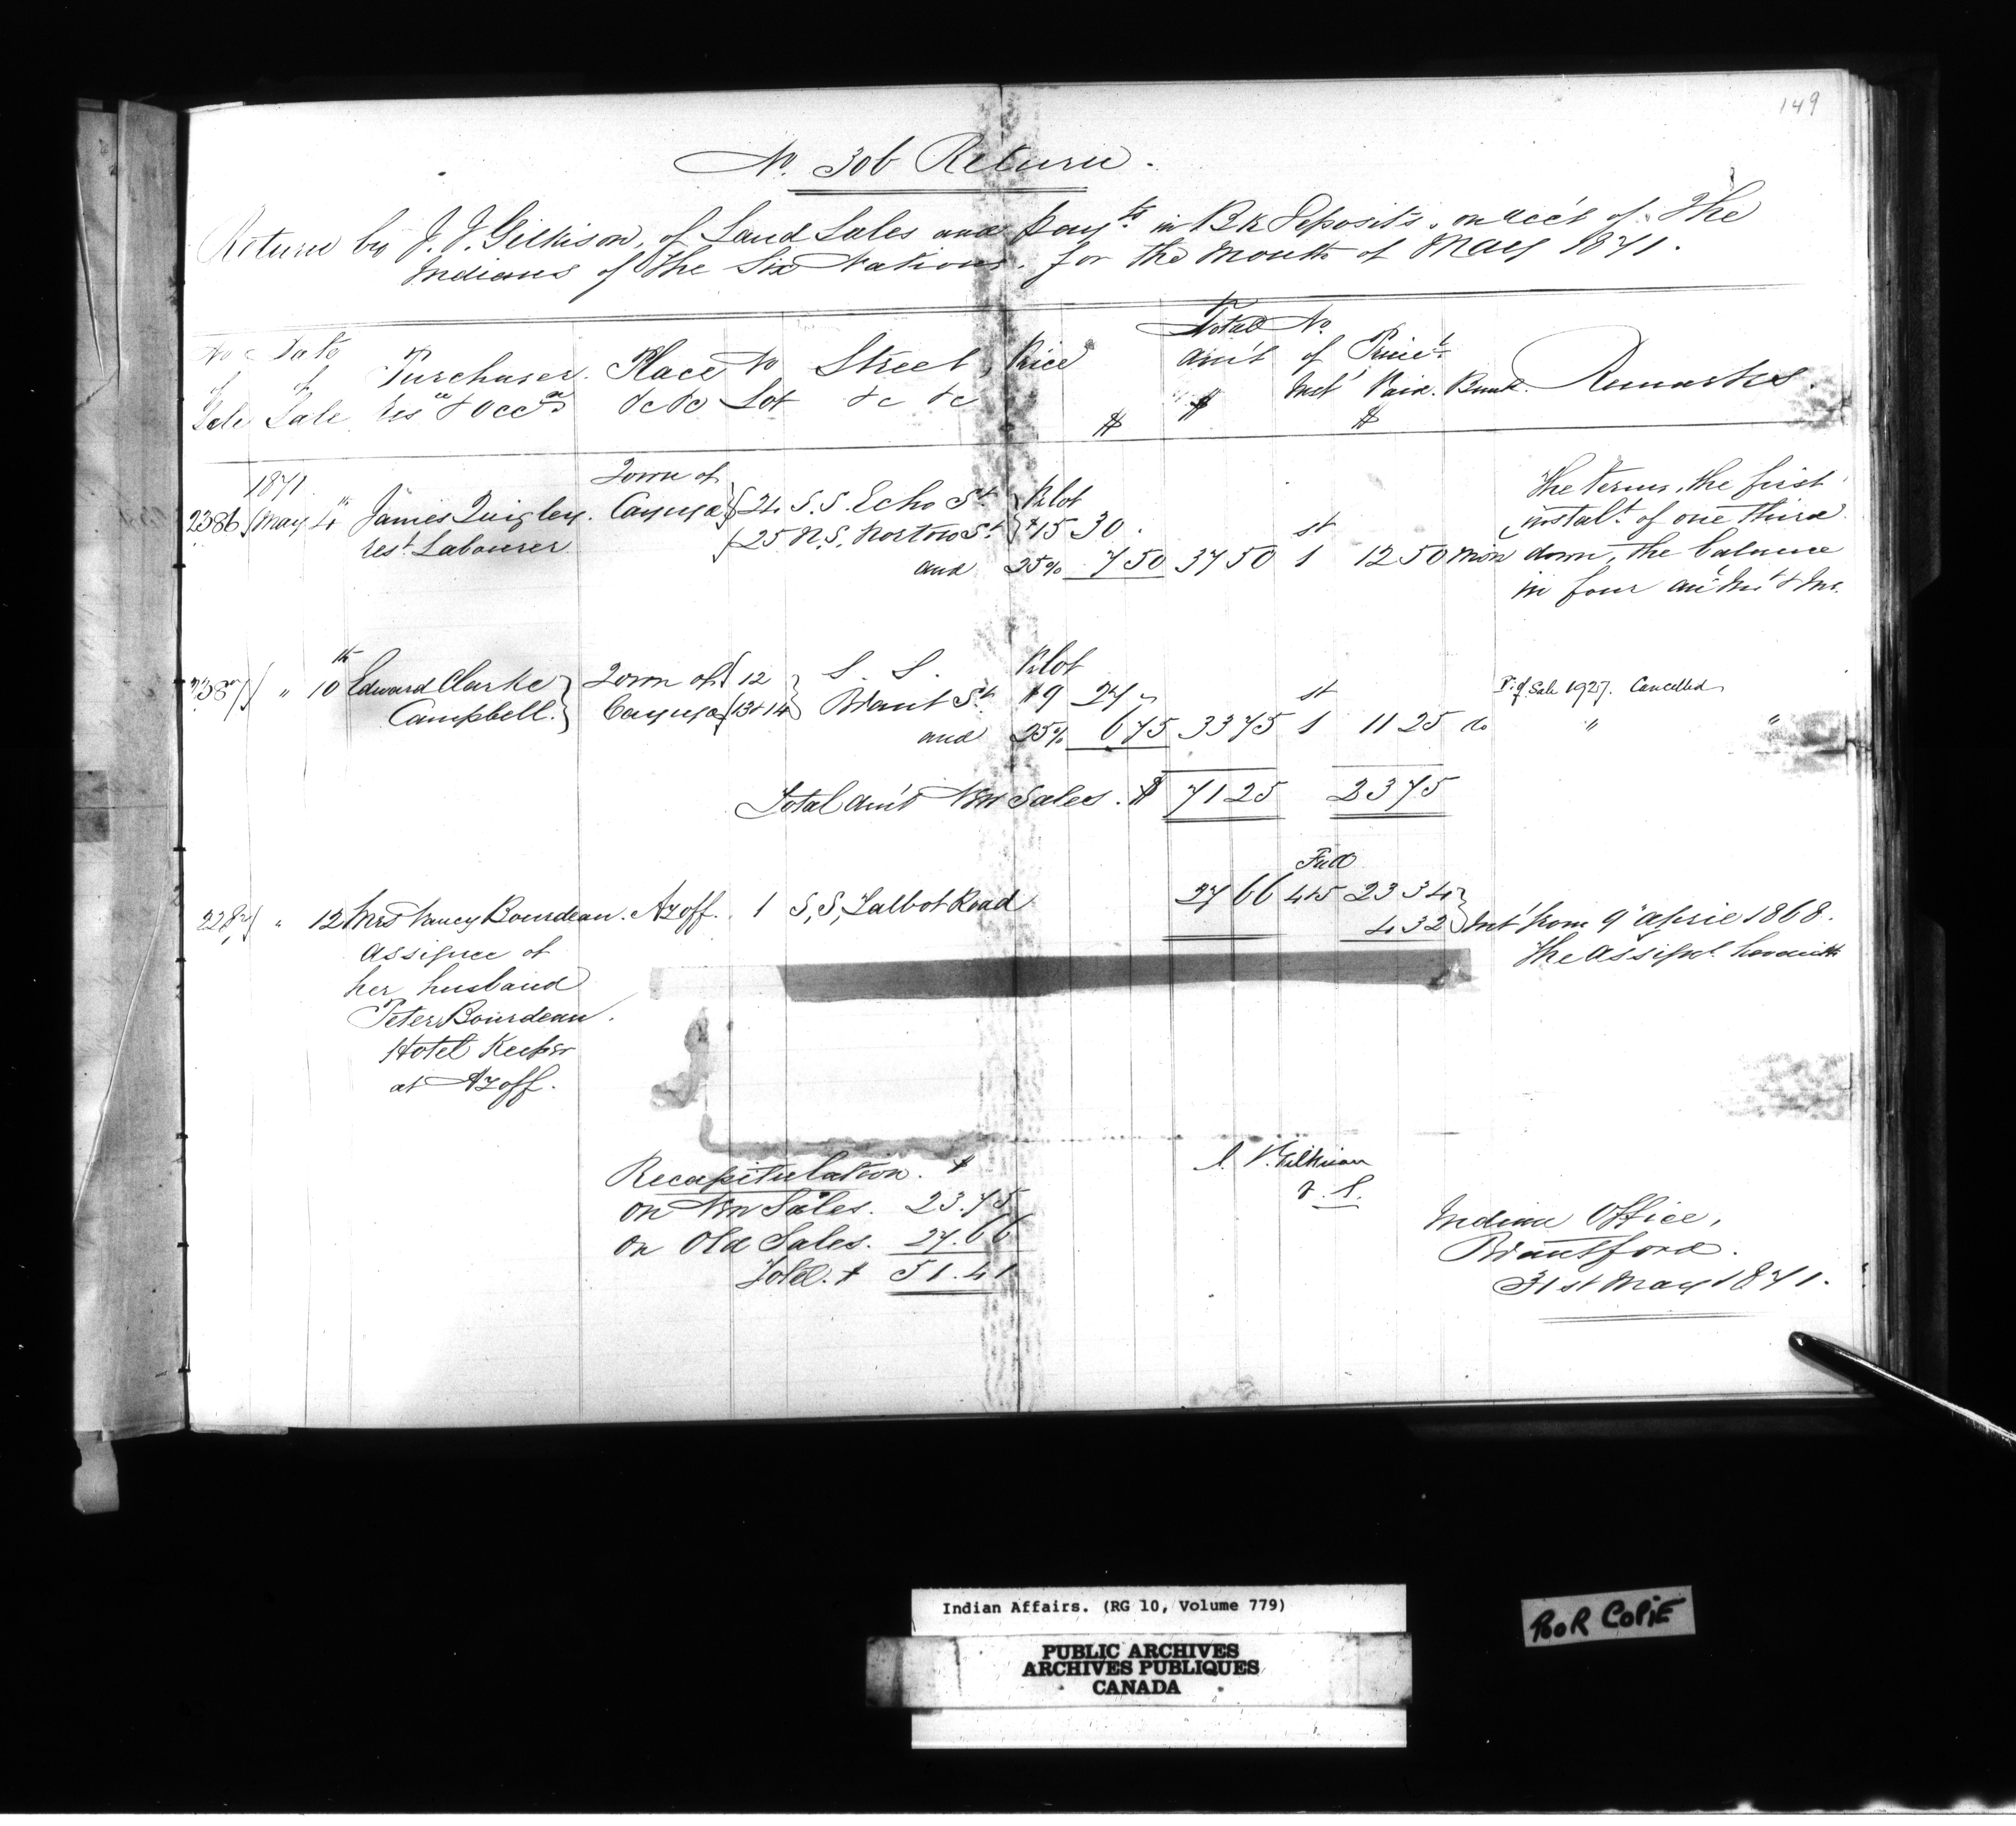 149
No. 306 Return.
Return by J. T. Gilkison, of Land Sales and Paym'ts in Bk Deposits, on acc't of The
Indians of the Six Nations, for the Month of May 1871.
No of Sale Date of Sale Purchaser Res ce & Occ on Place &c &c No Lot Street &c &c Price $ Total am't $ No. of Inst Princ'l Paid $ Bank Remarks.
1871
2386 May 4th James Quigley. Town of Cayuga 24 S.S. Echo St. Pr lot The Terms, the first
rest Labourer 25 N.S. Norton St. $15 30. instalt. of one third
and 25% 7 50 37 50 1st 12 50 Mon down, the balance
in four an Ins't & Int.
2387 " 10th Edward Clarke Town of 12 S. S. Pr lot
Campbell. Cayuga 13 & 14 Brant St. $9 27 " Sale 1927. Cancelled
and 25% 6 75 33 75 1st 11 25 do " "
Total am't New Sales. $ 71 25 23 75
Full
2287 " 12 Mrs Nancy Bourdeau. Azoff. 1 S, S, Talbot Road 27 66 4 & 5 23 34
4 32 Int from 9th April 1868.
assignee of The Assignt. herewith
her husband
Peter Bourdeau.
Hotel Keeper
at Azoff.
Recapitulation. $
on New Sales. 23.75
on Old Sales. 27.66
Total. $ 51.41
J. T. Gilkison
Indian Office,
Brantford.
31st May 1871.
Indian Affairs. (RG 10, Volume 779)
PUBLIC ARCHIVES
ARCHIVES PUBLIQUES
CANADA
POOR COPIE